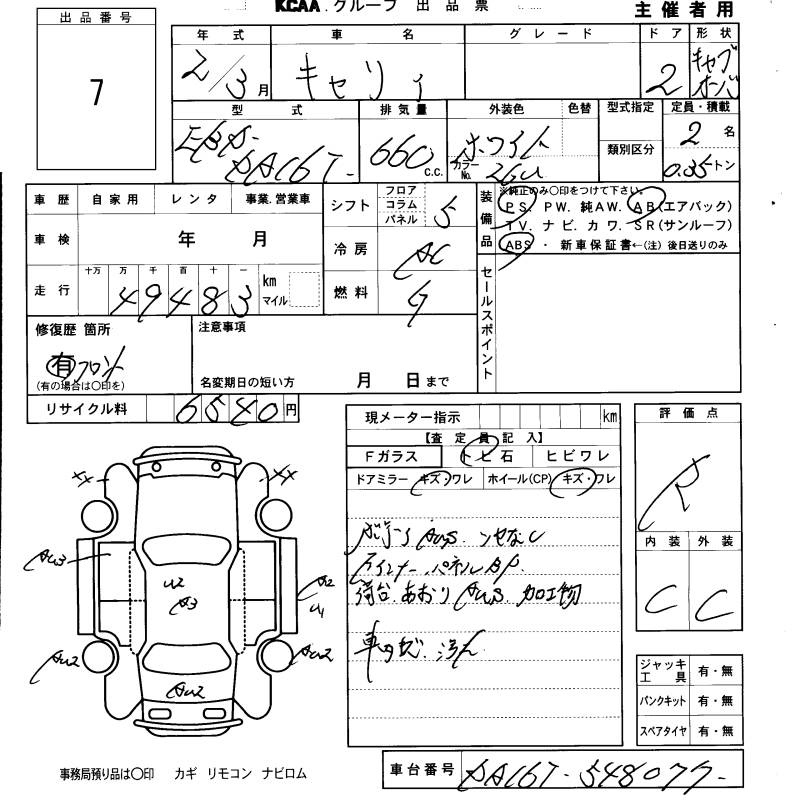 KCAA.グループ 出品票
主催者用
出品番号
7
年式 車名 グレード ドア 形状
2/3月 キャリィ 2 キャブオーバ
型式 排気量 外装色 色替 型式指定 定員・積載
EBD-DA16T- 660 c.c. ホワイト カラーNo. 26U 類別区分 2名 0.35トン
車歴 自家用 レンタ 事業.営業車
シフト フロア コラム パネル 5
装備品 ※純正のみ○印をつけて下さい。
PS. PW. 純AW. AB(エアバック)
TV. ナビ. カワ. SR(サンルーフ)
ABS ・ 新車保証書←(注) 後日送りのみ
車検 年 月
冷房 AC
走行 十万 万 千 百 十 一 km マイル
49483
燃料 G
セールスポイント
修復歴 箇所
有 フロント
(有の場合は○印を)
注意事項
名変期日の短い方 月 日まで
リサイクル料 6540円
現メーター指示 km
【査定員記入】
Fガラス トビ石 ヒビワレ
ドアミラー キズ・ワレ ホイール(CP) キズ・ワレ
インナーパネルBP.
荷台.あおり AUS 加工物
車内キズ.汚れ
評価点
R
内装 外装
C C
ジャッキ工具 有・無
パンクキット 有・無
スペアタイヤ 有・無
XX XX
AU3 U2 A3 A2 U1
AU2 AU2 AU2
事務局預り品は○印 カギ リモコン ナビロム
車台番号 DA16T-548077-